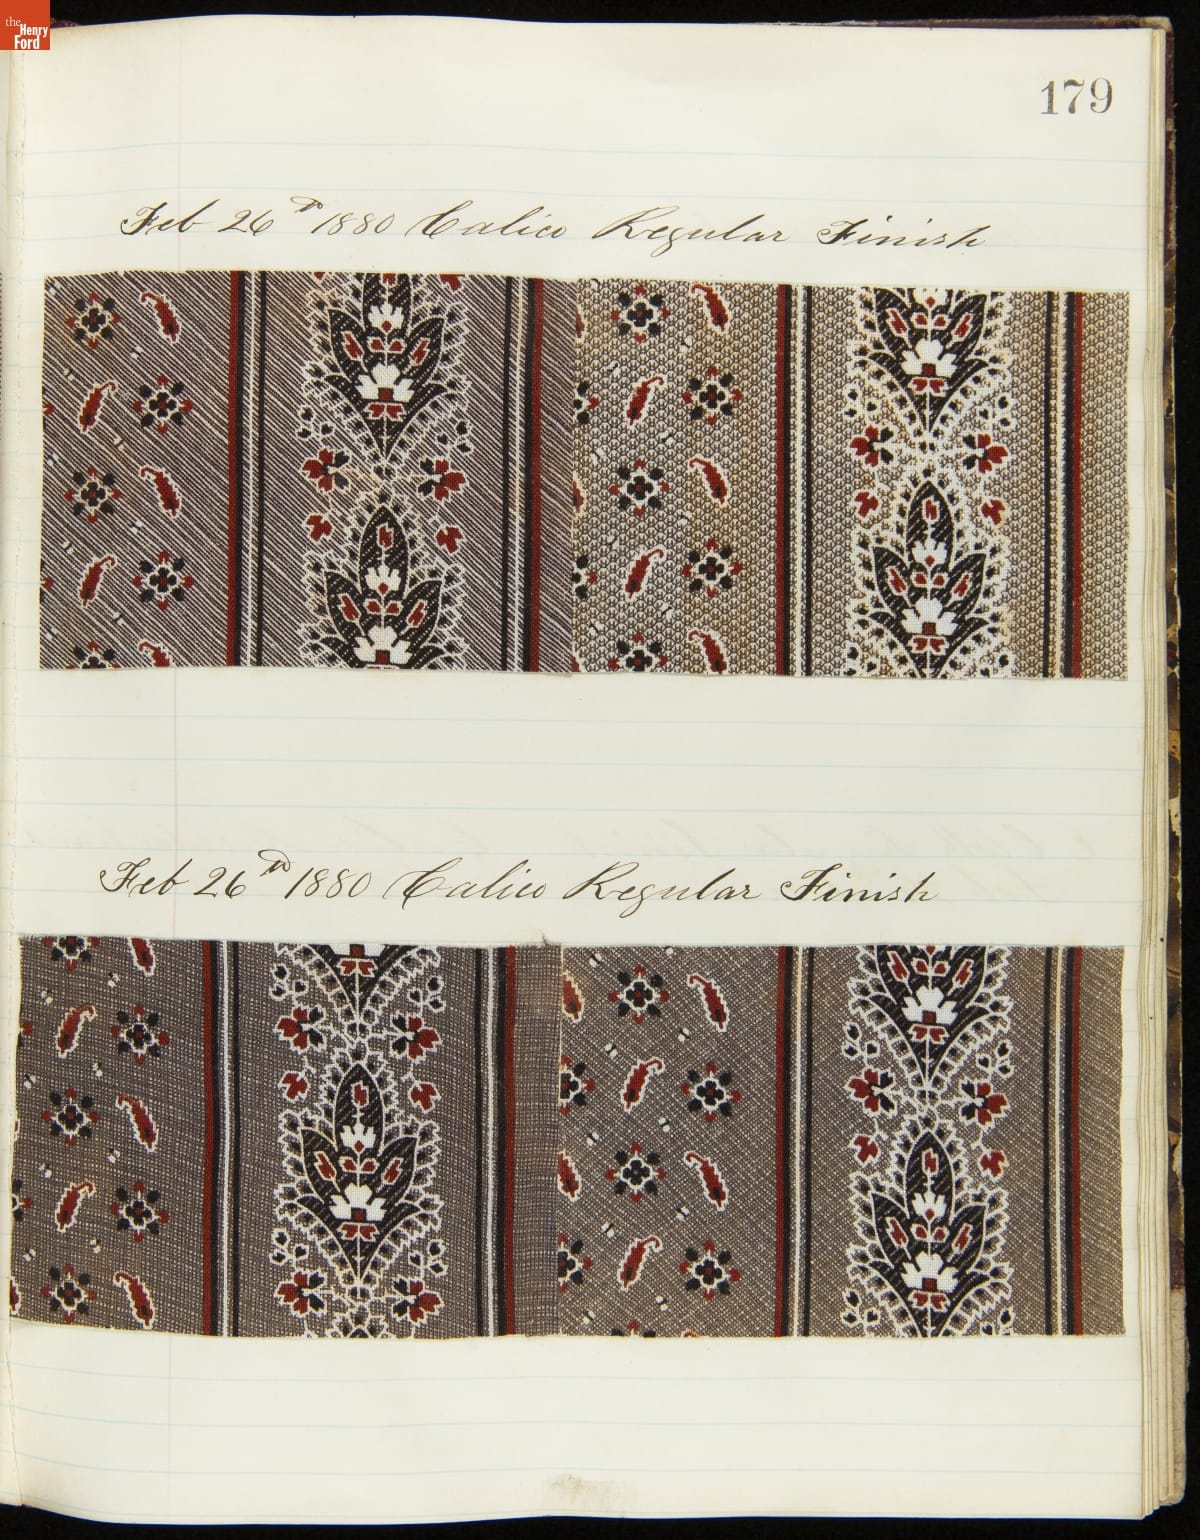 the
Henry
Ford
179
Feb 26th 1880 Calico Regular Finish
Feb 26th 1880 Calico Regular Finish